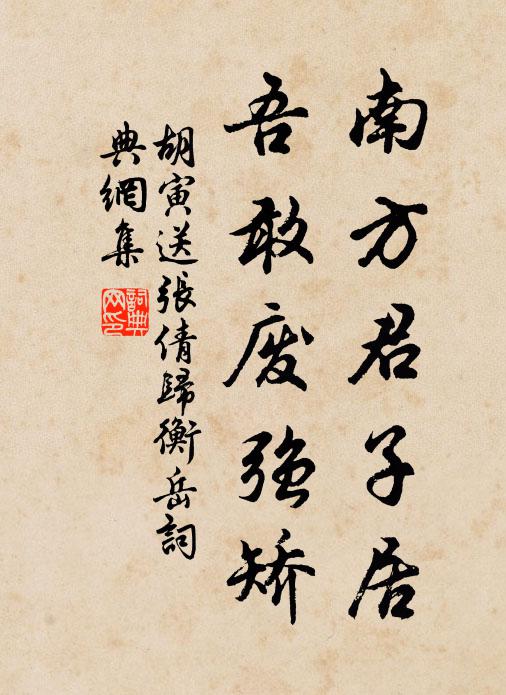 南方君子居
吾敢废强矫
胡寅送張倩歸衡岳詞
典網集
詞典网印